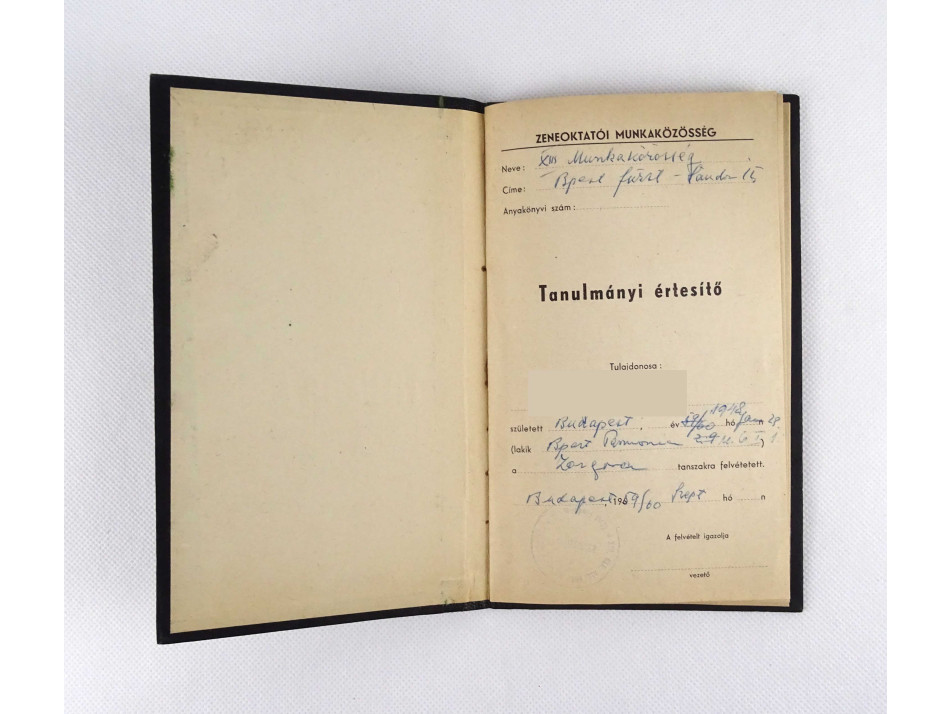 ZENEOKTATÓI MUNKAKÖZÖSSÉG
Neve: XIII Munkaközösség
Címe: Bpest Fürst Sándor
Anyakönyvi szám:
Tanulmányi értesítő
Tulajdonosa:
született Budapest. év 59/60 1948 hó jan n 29.
(lakik Bpest Pannonia
a Zongora tanszakra felvétetett.
Budapest, 1959/60 Szept hó n
A felvételt igazolja
vezető